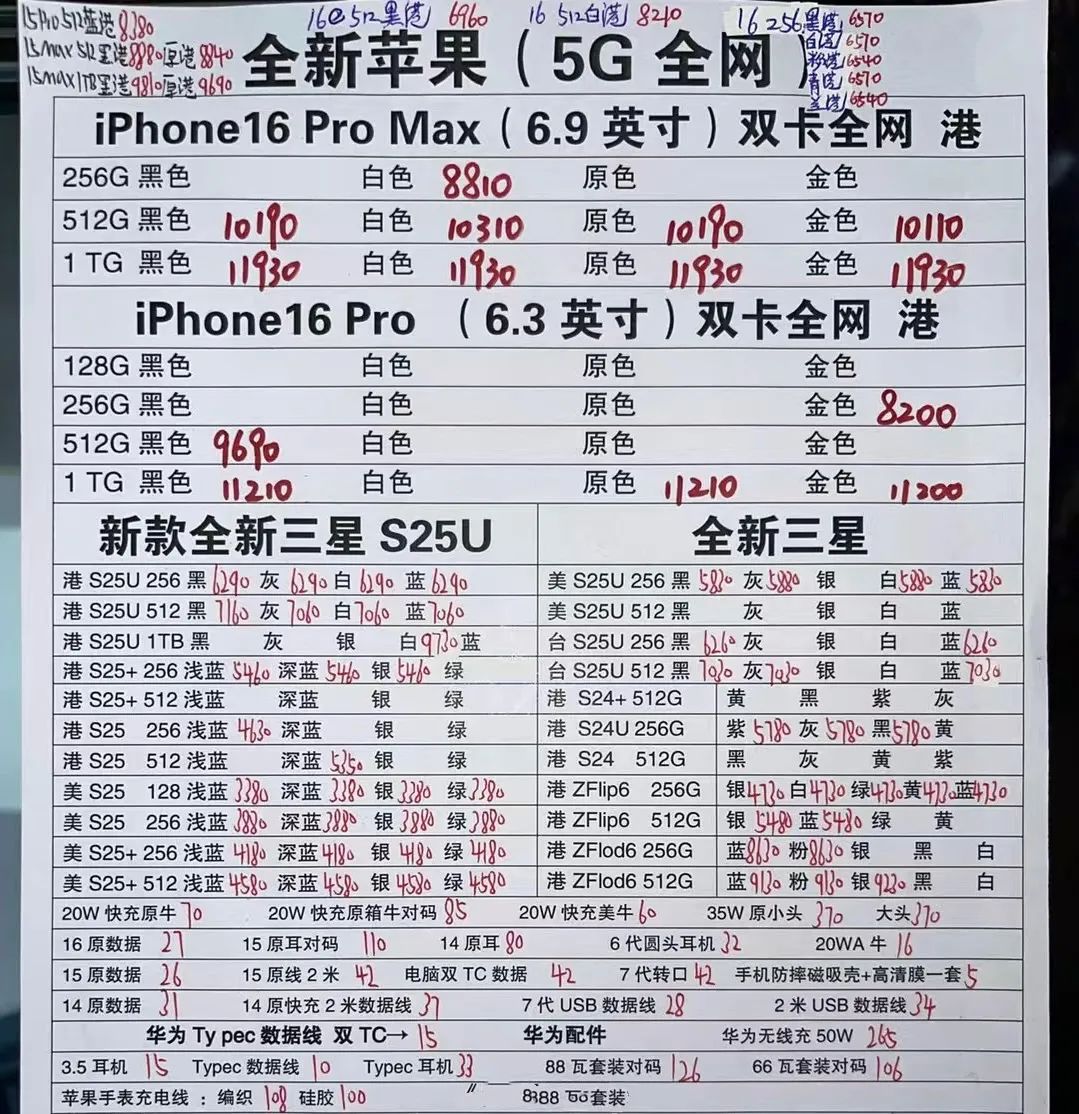 15Pro 512蓝港 8380 16@512黑港 6960 16 512白港 8210 16 256黑港 6570
白港 6570
15max 512黑港 8880原港 8840 粉港 6540
青港 6570
15max1TB黑港 9810原港 9690 6540
全新苹果（5G 全网）
iPhone16 Pro Max（6.9 英寸）双卡全网 港
256G 黑色 白色 8810 原色 金色
512G 黑色 10190 白色 10310 原色 10190 金色 10110
1 TG 黑色 11930 白色 11930 原色 11930 金色 11930
iPhone16 Pro （6.3 英寸）双卡全网 港
128G 黑色 白色 原色 金色
256G 黑色 白色 原色 金色 8200
512G 黑色 9690 白色 原色 金色
1 TG 黑色 11210 白色 原色 11210 金色 11200
新款全新三星 S25U 全新三星
港 S25U 256 黑 6290 灰 6290 白 6290 蓝 6290 美 S25U 256 黑 5830 灰 5880 银 白 5880 蓝 5830
港 S25U 512 黑 7160 灰 7060 白 7060 蓝 7060 美 S25U 512 黑 灰 银 白 蓝
港 S25U 1TB 黑 灰 银 白 9730 蓝 台 S25U 256 黑 6260 灰 银 白 蓝 6260
港 S25+ 256 浅蓝 5460 深蓝 5460 银 5460 绿 台 S25U 512 黑 7030 灰 7030 银 白 蓝 7030
港 S25+ 512 浅蓝 深蓝 银 绿 港 S24+ 512G 黄 黑 紫 灰
港 S25 256 浅蓝 4630 深蓝 银 绿 港 S24U 256G 紫 5780 灰 5780 黑 5780 黄
港 S25 512 浅蓝 深蓝 5350 银 绿 港 S24 512G 黑 灰 黄 紫
美 S25 128 浅蓝 3380 深蓝 3380 银 3380 绿 3380 港 ZFlip6 256G 银 4730 白 4730 绿 4730 黄 4730 蓝 4730
美 S25 256 浅蓝 3880 深蓝 3880 银 3880 绿 3880 港 ZFlip6 512G 银 5480 蓝 5480 绿 黄
美 S25+ 256 浅蓝 4180 深蓝 4180 银 4180 绿 4180 港 ZFlod6 256G 蓝 8630 粉 8630 银 黑 白
美 S25+ 512 浅蓝 4580 深蓝 4580 银 4580 绿 4580 港 ZFlod6 512G 蓝 9130 粉 9130 银 9230 黑 白
20W 快充原牛 70 20W 快充原箱牛对码 85 20W 快充美牛 60 35W 原小头 370 大头 370
16 原数据 27 15 原耳对码 110 14 原耳 80 6 代圆头耳机 32 20WA 牛 16
15 原数据 26 15 原线 2 米 42 电脑双 TC 数据 42 7 代转口 42 手机防摔磁吸壳+高清膜一套 5
14 原数据 31 14 原快充 2 米数据线 37 7 代 USB 数据线 28 2 米 USB 数据线 34
华为 Ty pec 数据线 双 TC→ 15 华为配件 华为无线充 50W 265
3.5 耳机 15 Typec 数据线 10 Typec 耳机 33 88 瓦套装对码 126 66 瓦套装对码 106
苹果手表充电线 ：编织 108 硅胶 100 套装